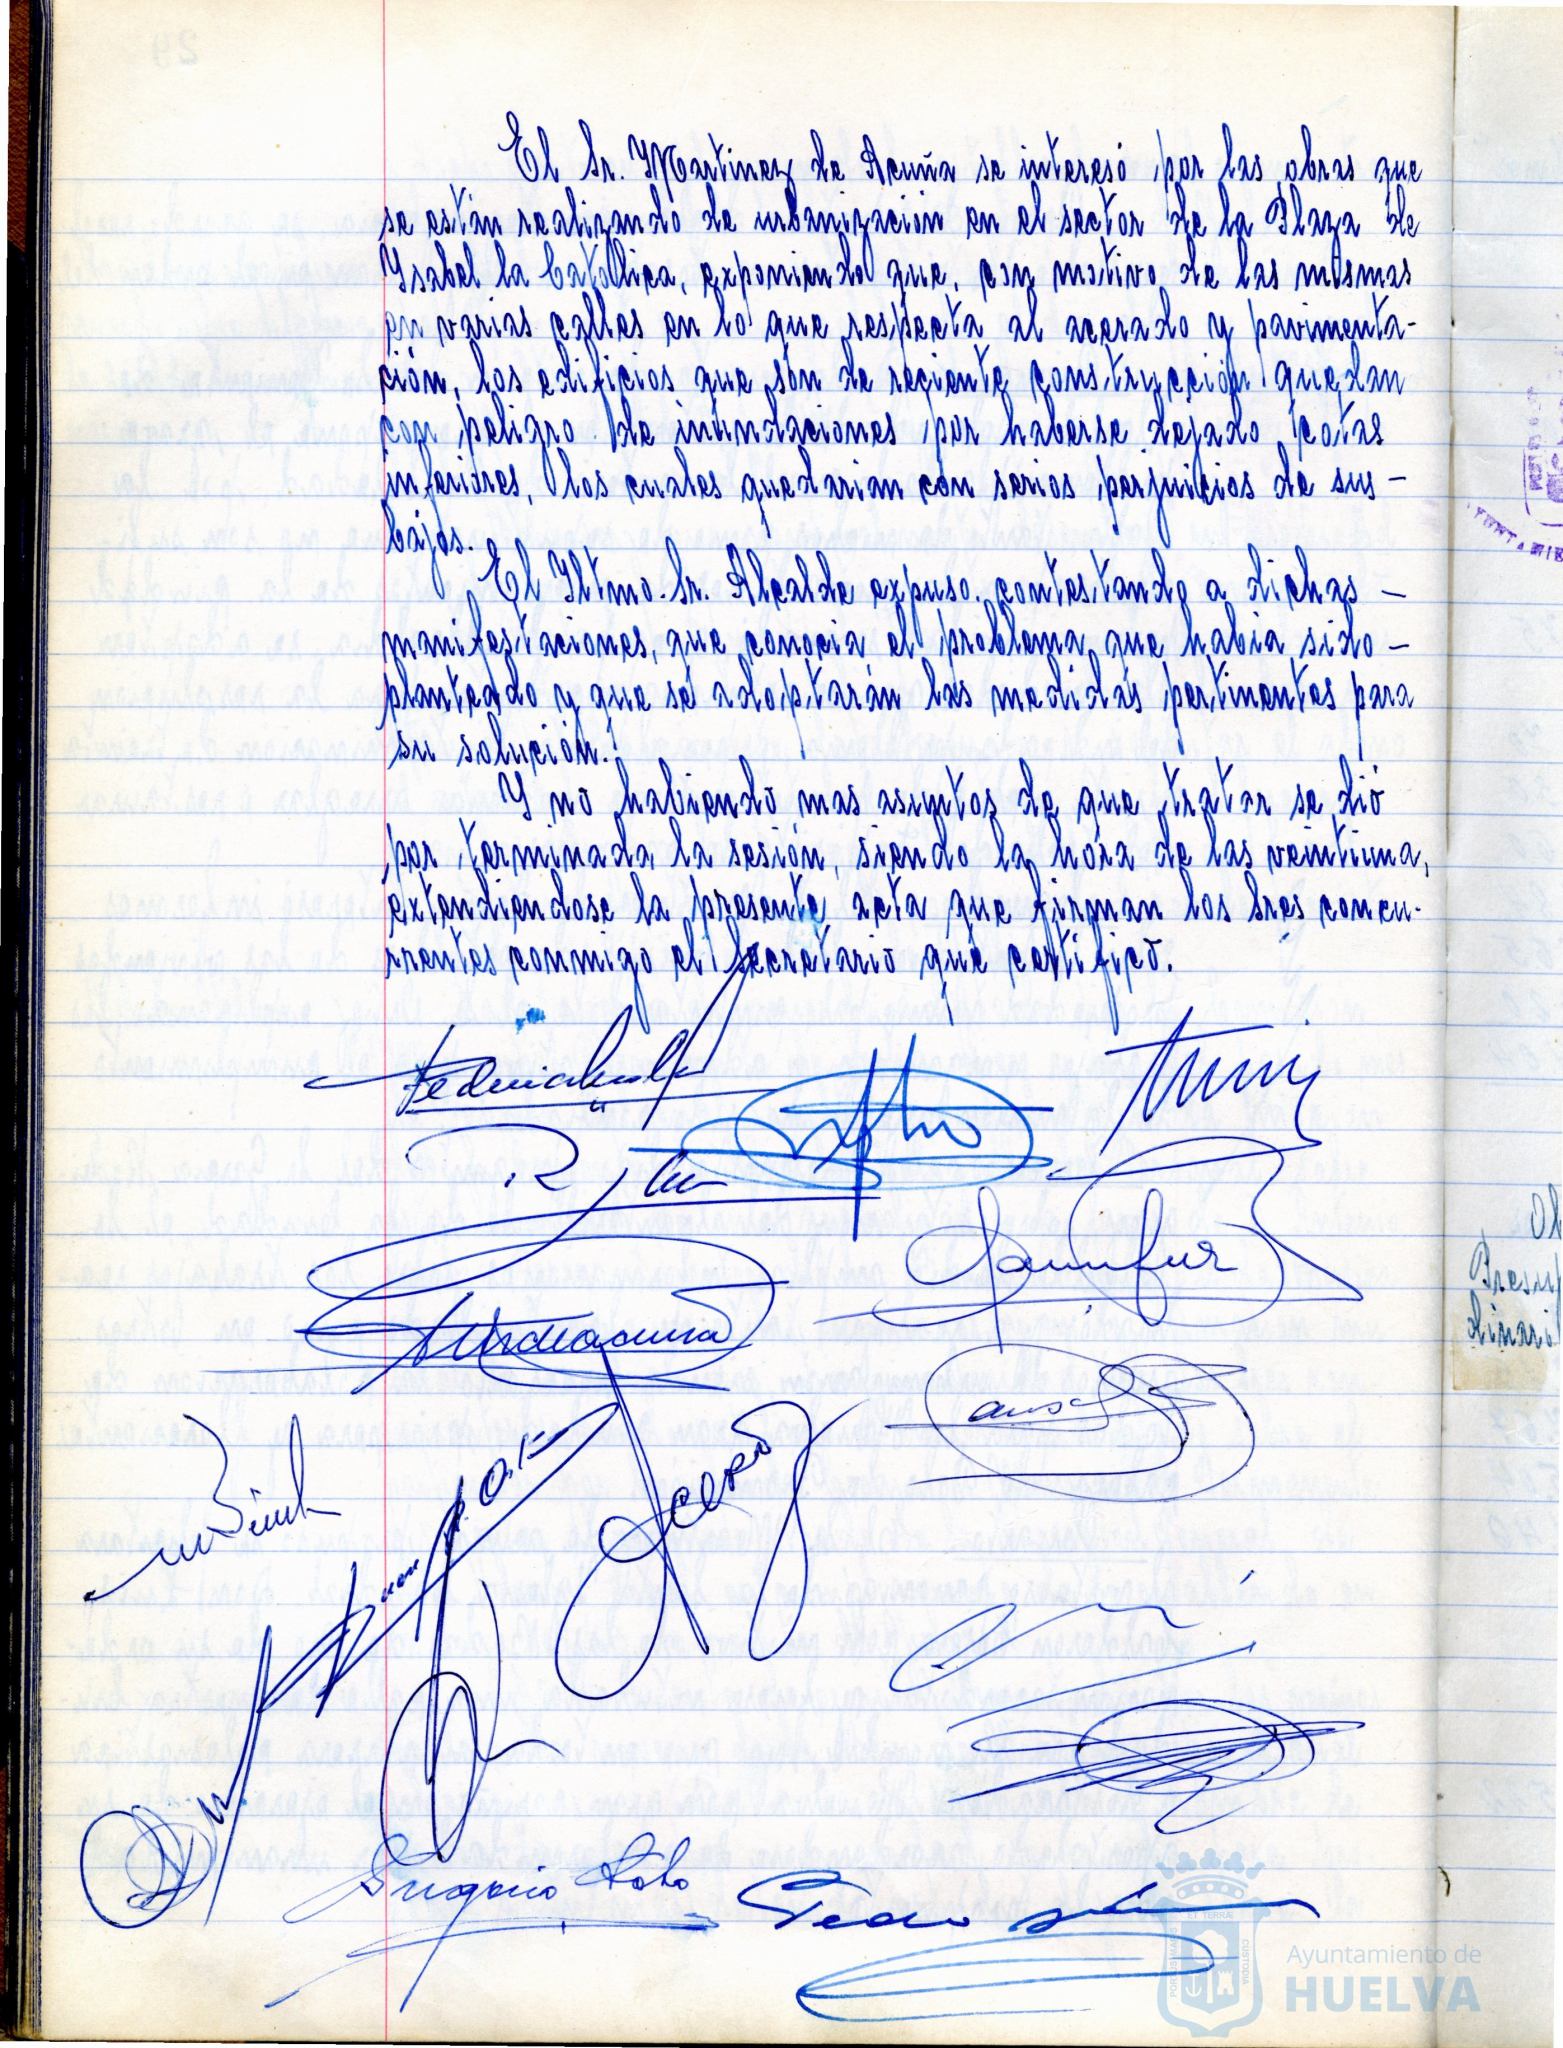 El Sr. Martinez de Acuña se interesó por las obras que
se están realizando de urbanización en el sector de la Plaza de
Ysabel la Católica, exponiendo que, con motivo de las mismas
en varias calles en lo que respecta al acerado y pavimenta-
ción, los edificios que son de reciente construcción quedan
con peligro de inundaciones por haberse dejado cotas
inferiores, los cuales quedarian con serios perjuicios de sus -
bajos.
El Yltmo. Sr. Alcalde expuso, contestando a dichas -
manifestaciones, que conocia el problema que habia sido -
planteado y que se adoptarán las medidas pertinentes para
su solución.
Y no habiendo mas asuntos de que tratar se dió
por terminada la sesión, siendo la hora de las veintiuna,
extendiendose la presente acta que firman los Sres concu-
rrentes conmigo el Secretario que certifico.
Eugenio
Pedro
Ayuntamiento de
HUELVA